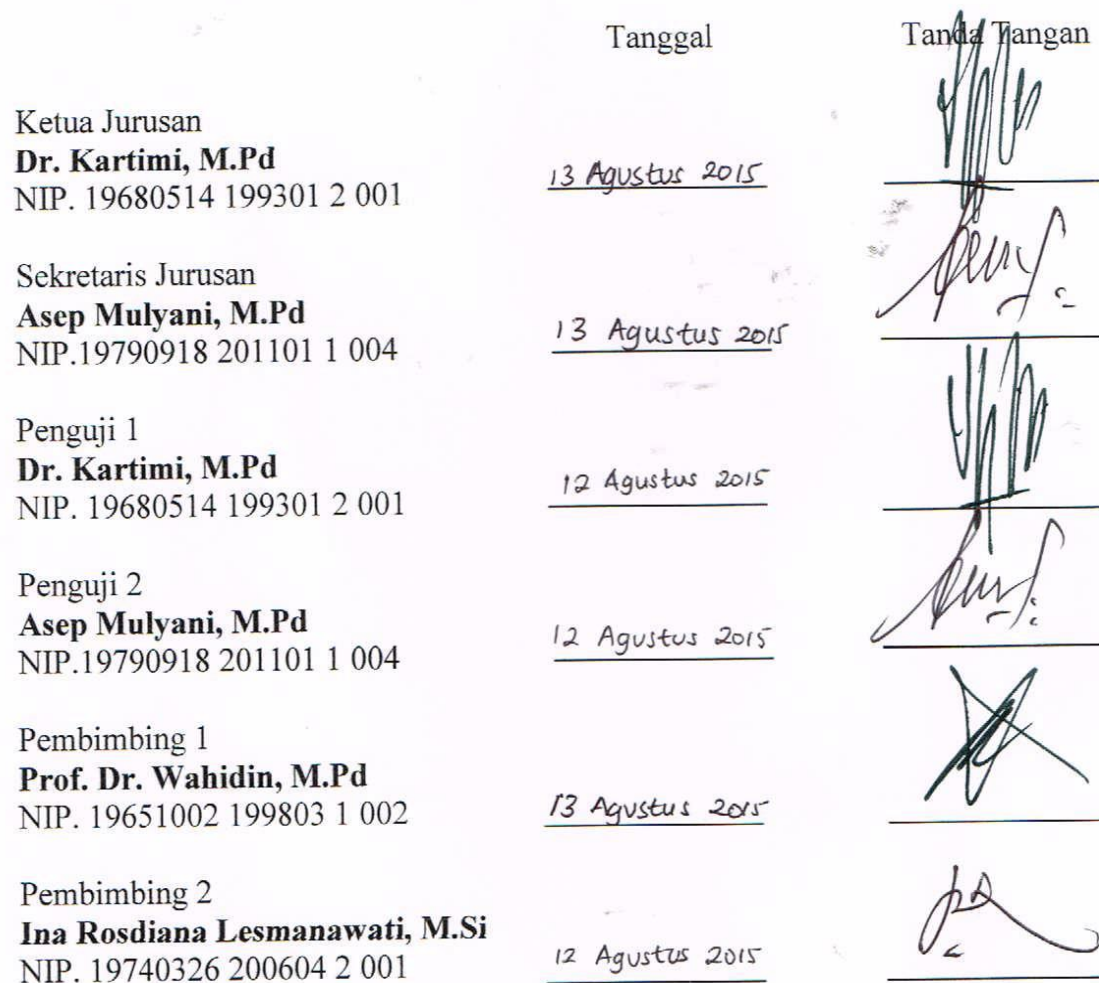 Tanggal Tanda Tangan
Ketua Jurusan
Dr. Kartimi, M.Pd
NIP. 19680514 199301 2 001 13 Agustus 2015
Sekretaris Jurusan
Asep Mulyani, M.Pd
NIP.19790918 201101 1 004 13 Agustus 2015
Penguji 1
Dr. Kartimi, M.Pd
NIP. 19680514 199301 2 001 12 Agustus 2015
Penguji 2
Asep Mulyani, M.Pd
NIP.19790918 201101 1 004 12 Agustus 2015
Pembimbing 1
Prof. Dr. Wahidin, M.Pd
NIP. 19651002 199803 1 002 13 Agustus 2015
Pembimbing 2
Ina Rosdiana Lesmanawati, M.Si
NIP. 19740326 200604 2 001 12 Agustus 2015